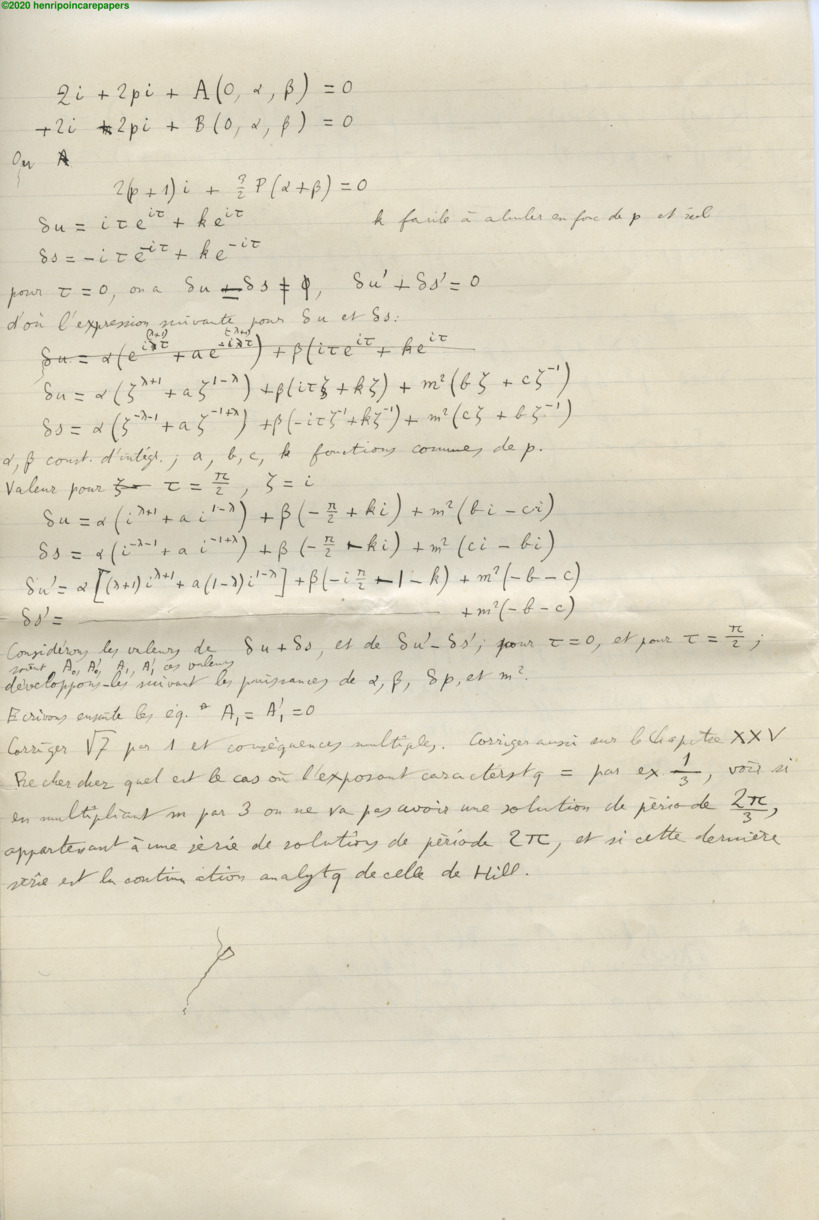 ©2020 henripoincarepapers
2i + 2pi + A(0, α, β) = 0
+2i + 2pi + B(0, α, β) = 0
Ou A
2(p+1)i + π/2 P(α+β) = 0
δu = iτe^{iτ} + ke^{iτ} k facile à calculer en fonc de p et réel
δs = -iτe^{-iτ} + ke^{-iτ}
pour τ = 0, on a δu ± δs ≠ 0, δu' + δs' = 0
d'où l'expression suivante pour δu et δs:
δu = α(e^{i(λ+1)τ} + ae ) + β(iτe^{iτ} + ke^{iτ}
δu = α(ζ^{λ+1} + aζ^{1-λ}) + β(iτζ + kζ) + m²(bζ + cζ^{-1})
δs = α(ζ^{-λ-1} + aζ^{-1+λ}) + β(-iτζ^{-1} + kζ^{-1}) + m²(cζ + bζ^{-1})
α, β const. d'intégr.; a, b, c, k fonctions connues de p.
Valeur pour ζ τ = π/2, ζ = i
δu = α(i^{λ+1} + a i^{1-λ}) + β(-π/2 + ki) + m²(bi - ci)
δs = α(i^{-λ-1} + a i^{-1+λ}) + β(-π/2 - ki) + m²(ci - bi)
δu' = α[(λ+1)i^{λ+1} + a(1-λ)i^{1-λ}] + β(-iπ/2 - 1 - k) + m²(-b - c)
δs' = ———— + m²(-b - c)
Considérons les valeurs de δu + δs, et de δu' - δs'; pour τ = 0, et pour τ = π/2;
soient A₀, A'₀, A₁, A'₁ ces valeurs
développons-les suivant les puissances de α, β, δp, et m².
Ecrivons ensuite les éq. A₁ = A'₁ = 0
Corriger √7 par 1 et conséquences multiples. Corriger aussi sur le Chapitre XXV
Rechercher quel est le cas où l'exposant caractérstq = par ex 1/3, voir si
en multipliant m par 3 on ne va pas avoir une solution de période 2π/3,
appartenant à une série de solutions de période 2π, et si cette dernière
série est la continuation analytq de celle de Hill.